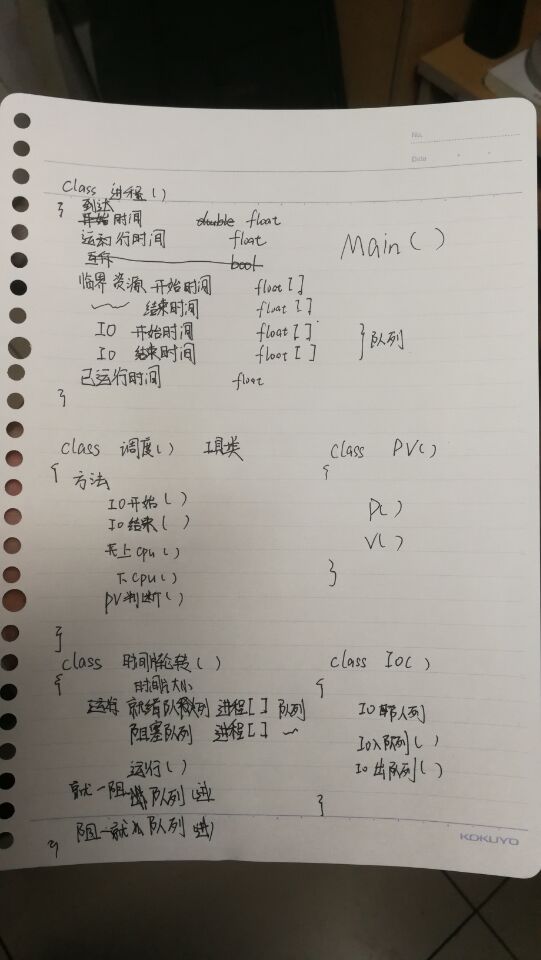 No.
Date
Class 进程()
{ 到达
开始时间 double float
运动行时间 float
互斥 bool
Main()
临界资源 开始时间 float[]
〜 结束时间 float[]
IO 开始时间 float[]
IO 结束时间 float[] } 队列
已运行时间 float
}
class 调度() 工具类
{ 方法
IO开始()
IO结束()
上cpu()
下cpu()
PV判断()
}
class PV()
{
P()
V()
}
class 时间片轮转()
{ 时间片大小
运行 就绪队列 进程[] 队列
阻塞队列 进程[] 〜
运行()
就—阻 出队列(进
阻—就 入队列(进)
}
class IO()
{
IO队列
IO入队列()
IO出队列()
}
KOKUYO